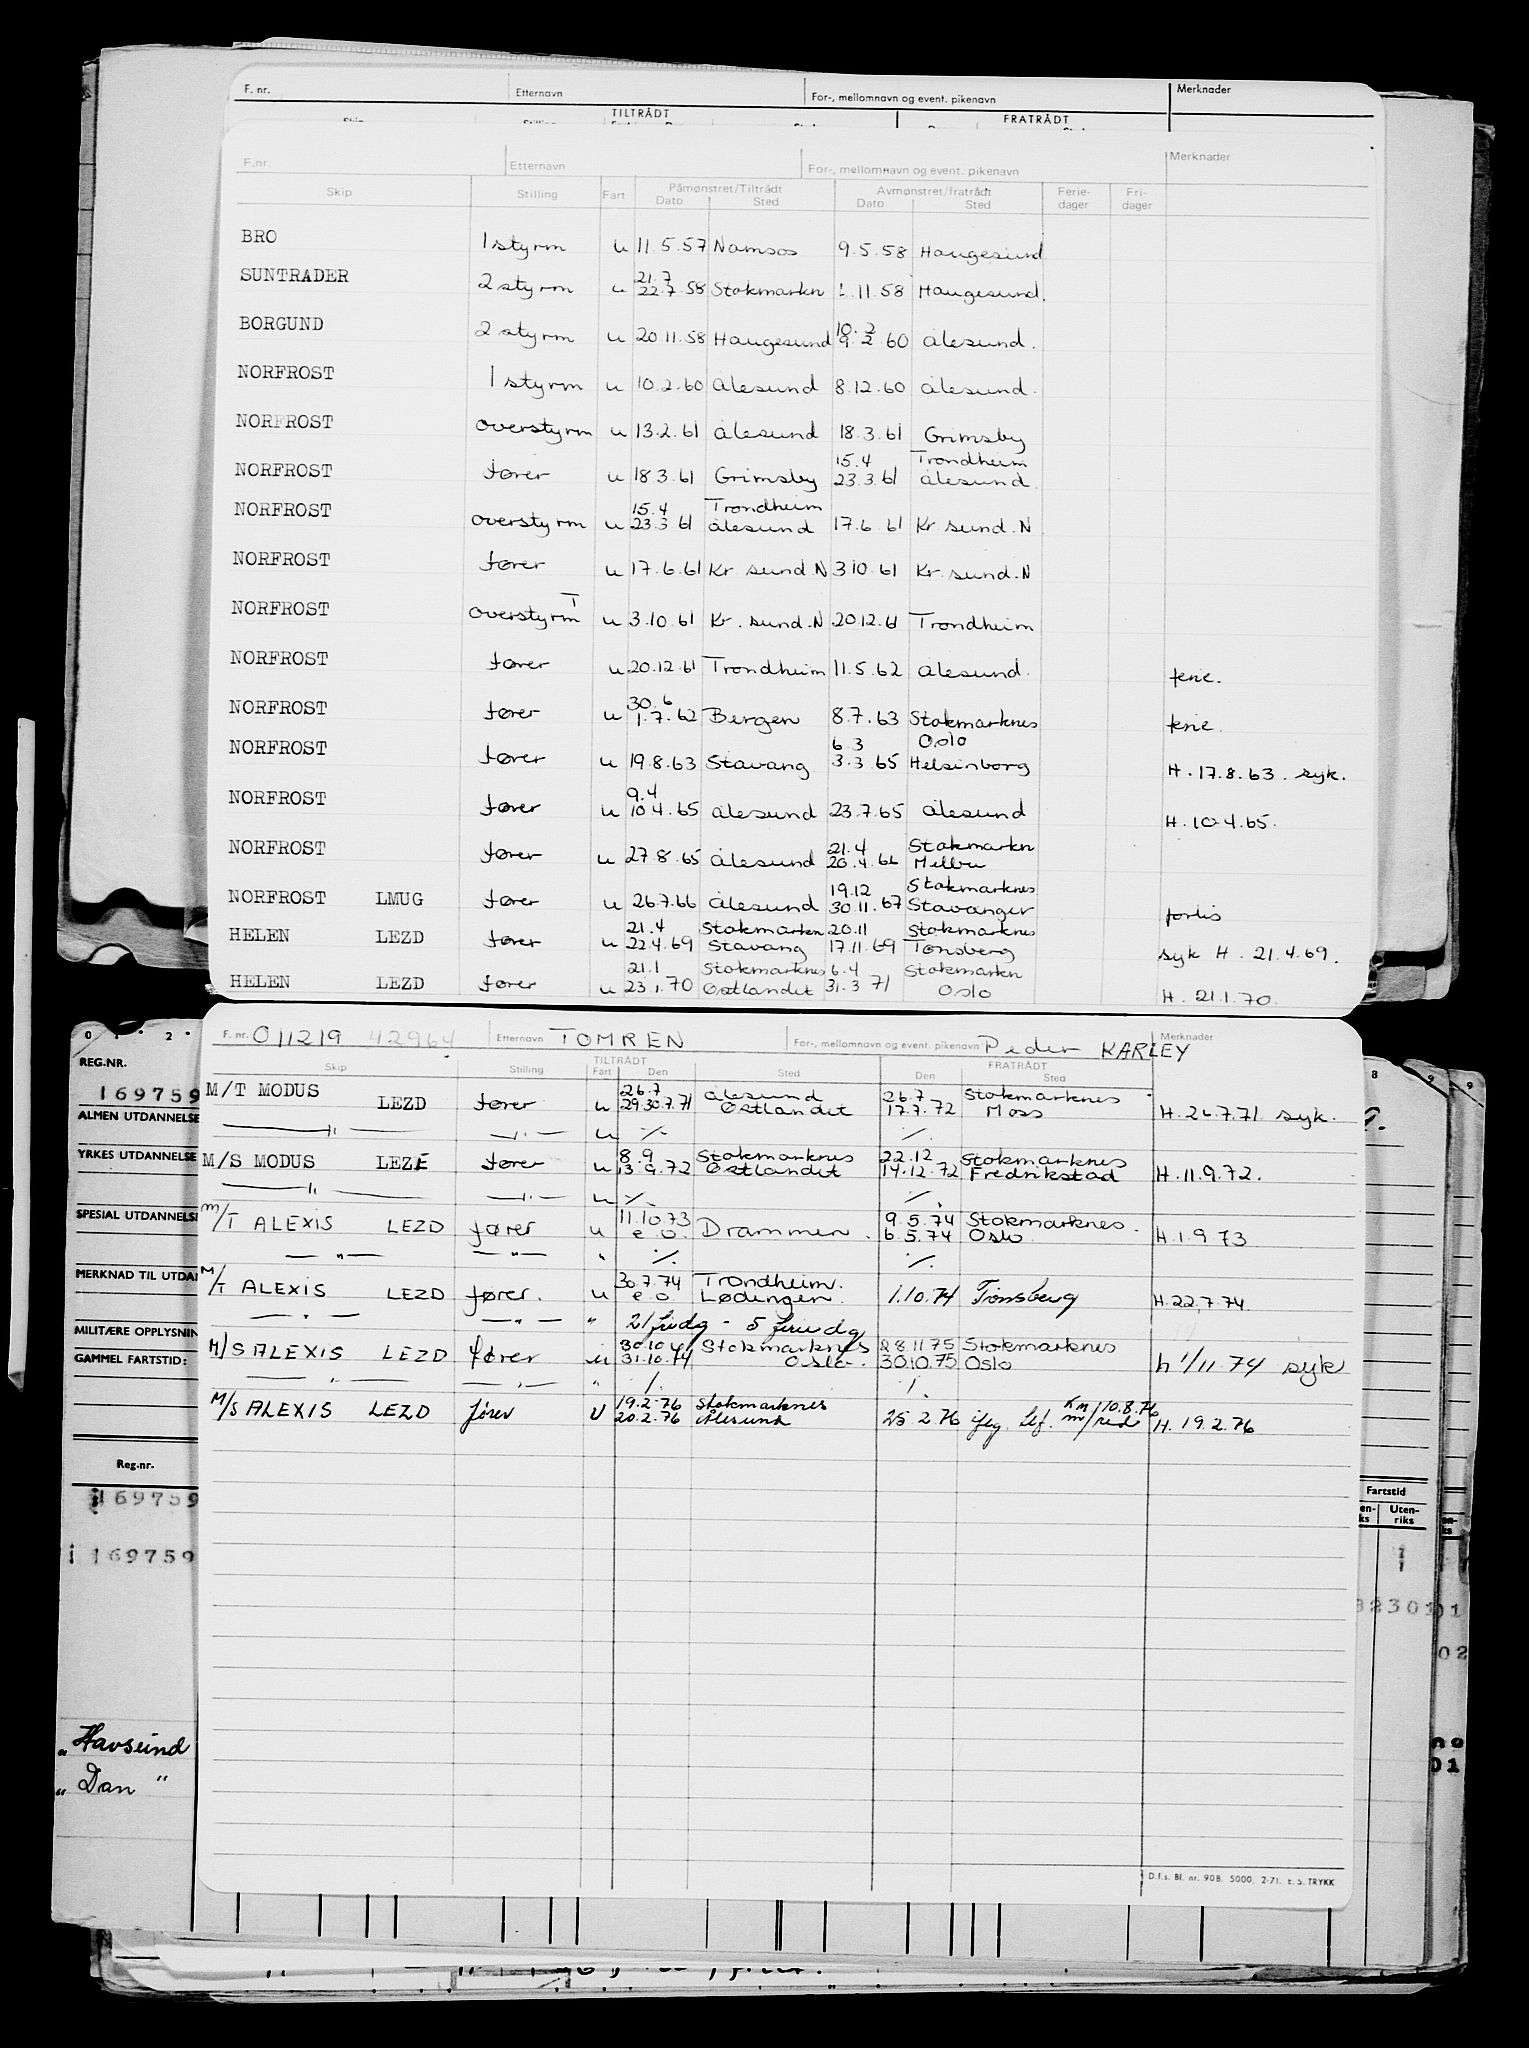 F. nr. Etternavn For-, mellomnavn og event. pikenavn Merknader
TILTRÅDT FRATRÅDT
F.nr. Etternavn For-, mellomnavn og event. pikenavn Merknader
Skip Stilling Fart Påmønstret/Tiltrådt Avmønstret/fratrådt Ferie- Fri-
Dato Sted Dato Sted dager dager
BRO 1 styrm u 11.5.57 Namsos 9.5.58 Haugesund
21.7
SUNTRADER 2 styrm u 22.7.58 Stokmarkn 11.58 Haugesund.
10.2
BORGUND 2 styrm u 20.11.58 Haugesund 9.2.60 Ålesund.
NORFROST 1 styrm u 10.2.60 Ålesund 8.12.60 Ålesund.
NORFROST overstyrm u 13.2.61 Ålesund 18.3.61 Grimsby
15.4 Trondheim
NORFROST fører u 18.3.61 Grimsby 23.3.61 Ålesund
15.4 Trondheim
NORFROST overstyrm u 23.3.61 Ålesund 17.6.61 Kr.sund.N
NORFROST fører u 17.6.61 Kr.sund N 3.10.61 Kr.sund.N
T
NORFROST overstyrm u 3.10.61 Kr.sund.N 20.12.61 Trondheim
NORFROST fører u 20.12.61 Trondheim 11.5.62 Ålesund. ferie.
30.6
NORFROST fører u 1.7.62 Bergen 8.7.63 Stokmarknes ferie.
6.3 Oslo
NORFROST fører u 19.8.63 Stavang 3.3.65 Helsinborg H.17.8.63. syk.
9.4
NORFROST fører u 10.4.65 Ålesund 23.7.65 Ålesund H.10.4.65.
21.4 Stokmarkn
NORFROST fører u 27.8.65 Ålesund 20.4.66 Melbu
19.12 Stokmarknes
NORFROST LMUG fører u 26.7.66 Ålesund 30.11.67 Stavanger forlis
21.4 Stokmarkn 20.11 Stokmarknes
HELEN LEZD fører u 22.4.69 Stavang 17.11.69 Tønsberg syk H. 21.4.69.
21.1 Stokmarknes 6.4 Stokmarkn
HELEN LEZD fører u 23.1.70 Østlandet 31.3.71 Oslo H. 21.1.70.
F. nr. 011219 42964 Etternavn TOMREN For-, mellomnavn og event. pikenavn Peder KARLEY Merknader
TILTRÅDT FRATRÅDT
Skip Stilling Fart Den Sted Den Sted
26.7 Ålesund 26.7 Stokmarknes
M/T MODUS LEZD fører u 29.30.7.71 Østlandet 17.7.72 Moss H.26.7.71 syk.
—"— —"— u ·/· ·/·
8.9 Stokmarknes 22.12 Stokmarknes
M/S MODUS LEZE fører u 13.9.72 Østlandet 14.12.72 Fredrikstad H.11.9.72.
—"— —"— u ·/· ·/·
11.10.73 9.5.74 Stokmarknes.
M/T ALEXIS LEZD fører u e.o. Drammen. 6.5.74 Oslo H.1.9.73
—"— —"— " ·/· ·/·
30.7.74 Trondheim.
M/T ALEXIS LEZD fører. u e.o. Lødingen. 1.10.74 Tønsberg H.22.7.74.
—"— —"— " 21 fridg - 5 feriedg
30.10 Stokmarknes 28.11.75 Stokmarknes
M/S ALEXIS LEZD fører u 31.10.74 Oslo. 30.10.75 Oslo h 1/11.74 syk
—"— —"— " ·/· ·/·
19.2.76 Stokmarknes
M/S ALEXIS LEZD fører U 20.2.76 Ålesund 25.2.76 H. 19.2.76
10.8.76
D.f.s. Bl. nr. 908. 5000. 2-71. E.S. TRYKK
REG.NR.
169759
ALMEN UTDANNELSE
YRKES UTDANNELSE
SPESIAL UTDANNELSE
MERKNAD TIL UTDAN
MILITÆRE OPPLYSNIN
GAMMEL FARTSTID:
Reg.nr.
169759
i 169759
"Havsund
"Dan "
Fartstid
Uten-
riks